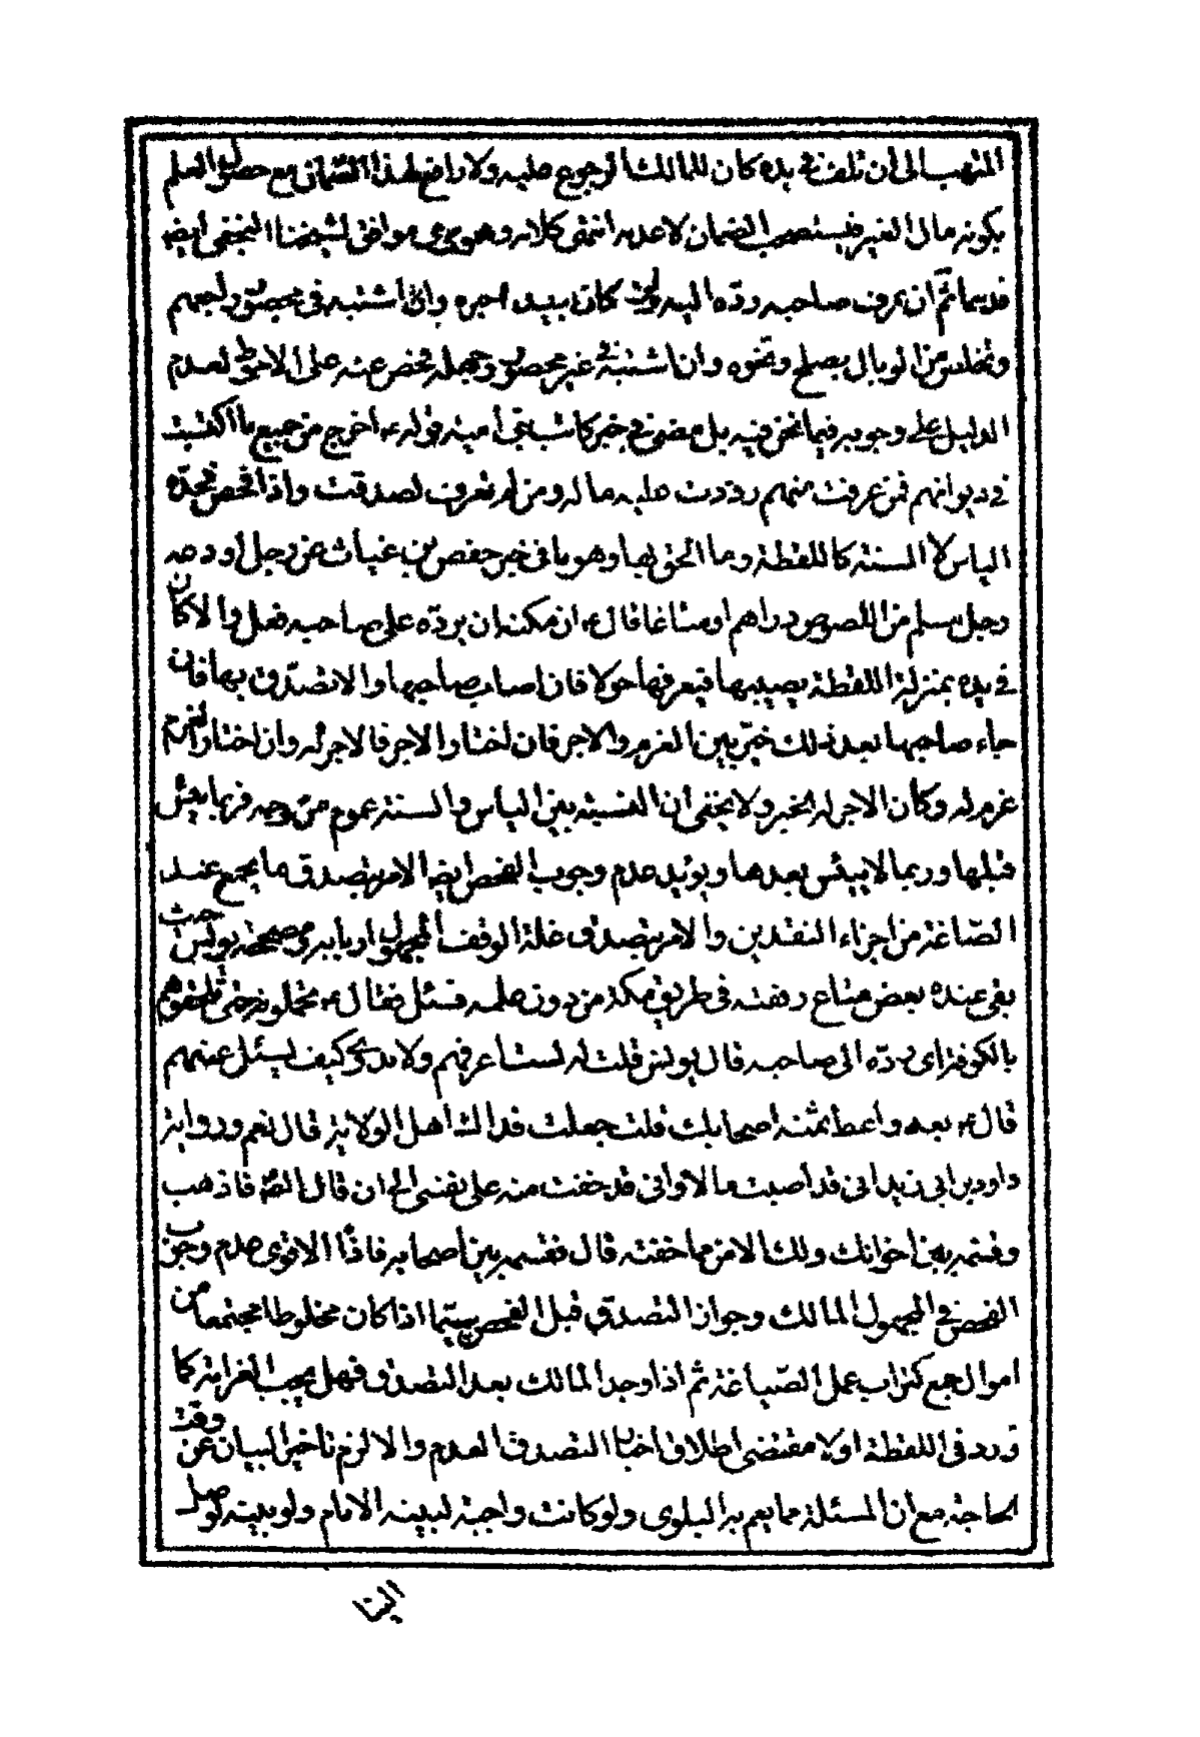 المنهب الى ان تلف في يده كان للمالك الرجوع عليه ولا رافع لهذا الضمان مع حصول العلم
بكونه مال الغير فيستصحب الضمان لا عدمه انتهى كلامه وهو موافق لشيخنا النجفى ايضا
فديما ثم ان عرف صاحبه رده اليه وان كان بيد احيره وان اشتبه في محصور راجعهم
وتخلص من الوبال بصلح ونحوه وان اشتبه في غير محصور وجهله تفحص عنه على الاحوط لعدم
الدليل على وجوبه فيما نحن فيه بل مضى في خبر كاتب بنى امية قوله ع اخرج من جميع ما اكتسبت
في ديوانهم فمن عرفت منهم رددت عليه ماله ومن لم تعرف تصدقت واذا فحص فحده
الياس لا السنة كاللقطة وما الحق بها وهو ما في خبر حفص بن غياث عن رجل اودعه
رجل مسلم من اللصوص دراهم او متاعا قال ع ان مكنه ان يرده على صاحبه فعل والا كان
في يده بمنزلة اللقطة يصيبها فيعرفها حولا فان اصاب صاحبها والا تصدق بها فان
جاء صاحبها بعد ذلك خير بين الغرم والاجر فان اختار الاجر فالاجر له وان اختار الغرم
غرم له وكان الاجر له الخبر ولا يخفى ان النسبة بين الياس والسنة عموم من وجه فربما ييئس
قبلها وربما لا ييئس بعدها ويؤيد عدم وجوب الفحص ايضا الامر بتصدق ما يجمع عند
الصاغة من اجزاء النقدين والامر بتصدق غلة الوقف المجهول اربابه وصحيحة يونس حيث
بقى عنده بعض متاع رفقته في طريق مكة من دون علمه فسئل فقال ع تحملونه حتى تلحقوهم
بالكوفة اى برده الى صاحبه قال يونس قلت له لست اعرفهم ولا ندرى كيف يسئل عنهم
قال ع بعه واعط ثمنه اصحابك قلت جعلت فداك اهل الولاية قال نعم ورواية
داود بن ابى زيد انى قد اصبت مالا وانى قد خفت منه على نفسى الى ان قال فاذهب
وقسمه بين اخوانك ولك الامن مما خفته قال فقسمه بين اصحابه فاذا الاقوى عدم وجوب
الفحص في المجهول المالك وجواز التصدق قبل الفحص سيما اذا كان مخلوطا مجتمعا من
اموال جمع كتراب عمل الصياغة ثم اذا وجد المالك بعد التصدق فهل يجب الغرامة كما
ورد في اللقطة او لا مقتضى اطلاق اخبار التصدق العدم والا لزم تاخير البيان عن وقت
الحاجة مع ان المسئلة مما يعم به البلوى ولو كانت واجبة لبينه الامام ولو بينه لوصل
الينا